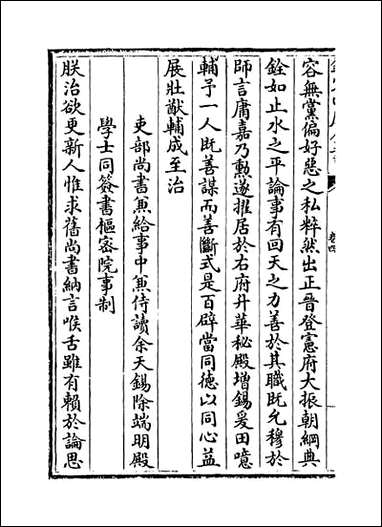 容無黨偏好惡之私粹然出正晉登憲府大振朝綱典
銓如止水之平論事有回天之力善於其職既允穆於
師言庸嘉乃勲遂擢居於右府升華秘殿增錫爰田噫
輔予一人既善謀而善斷式是百辟當同德以同心益
展壯猷輔成至治
吏部尚書兼給事中兼侍讀余天錫除端明殿
學士同簽書樞密院事制
朕治欲更新人惟求舊尚書納言喉舌雖有賴於論思